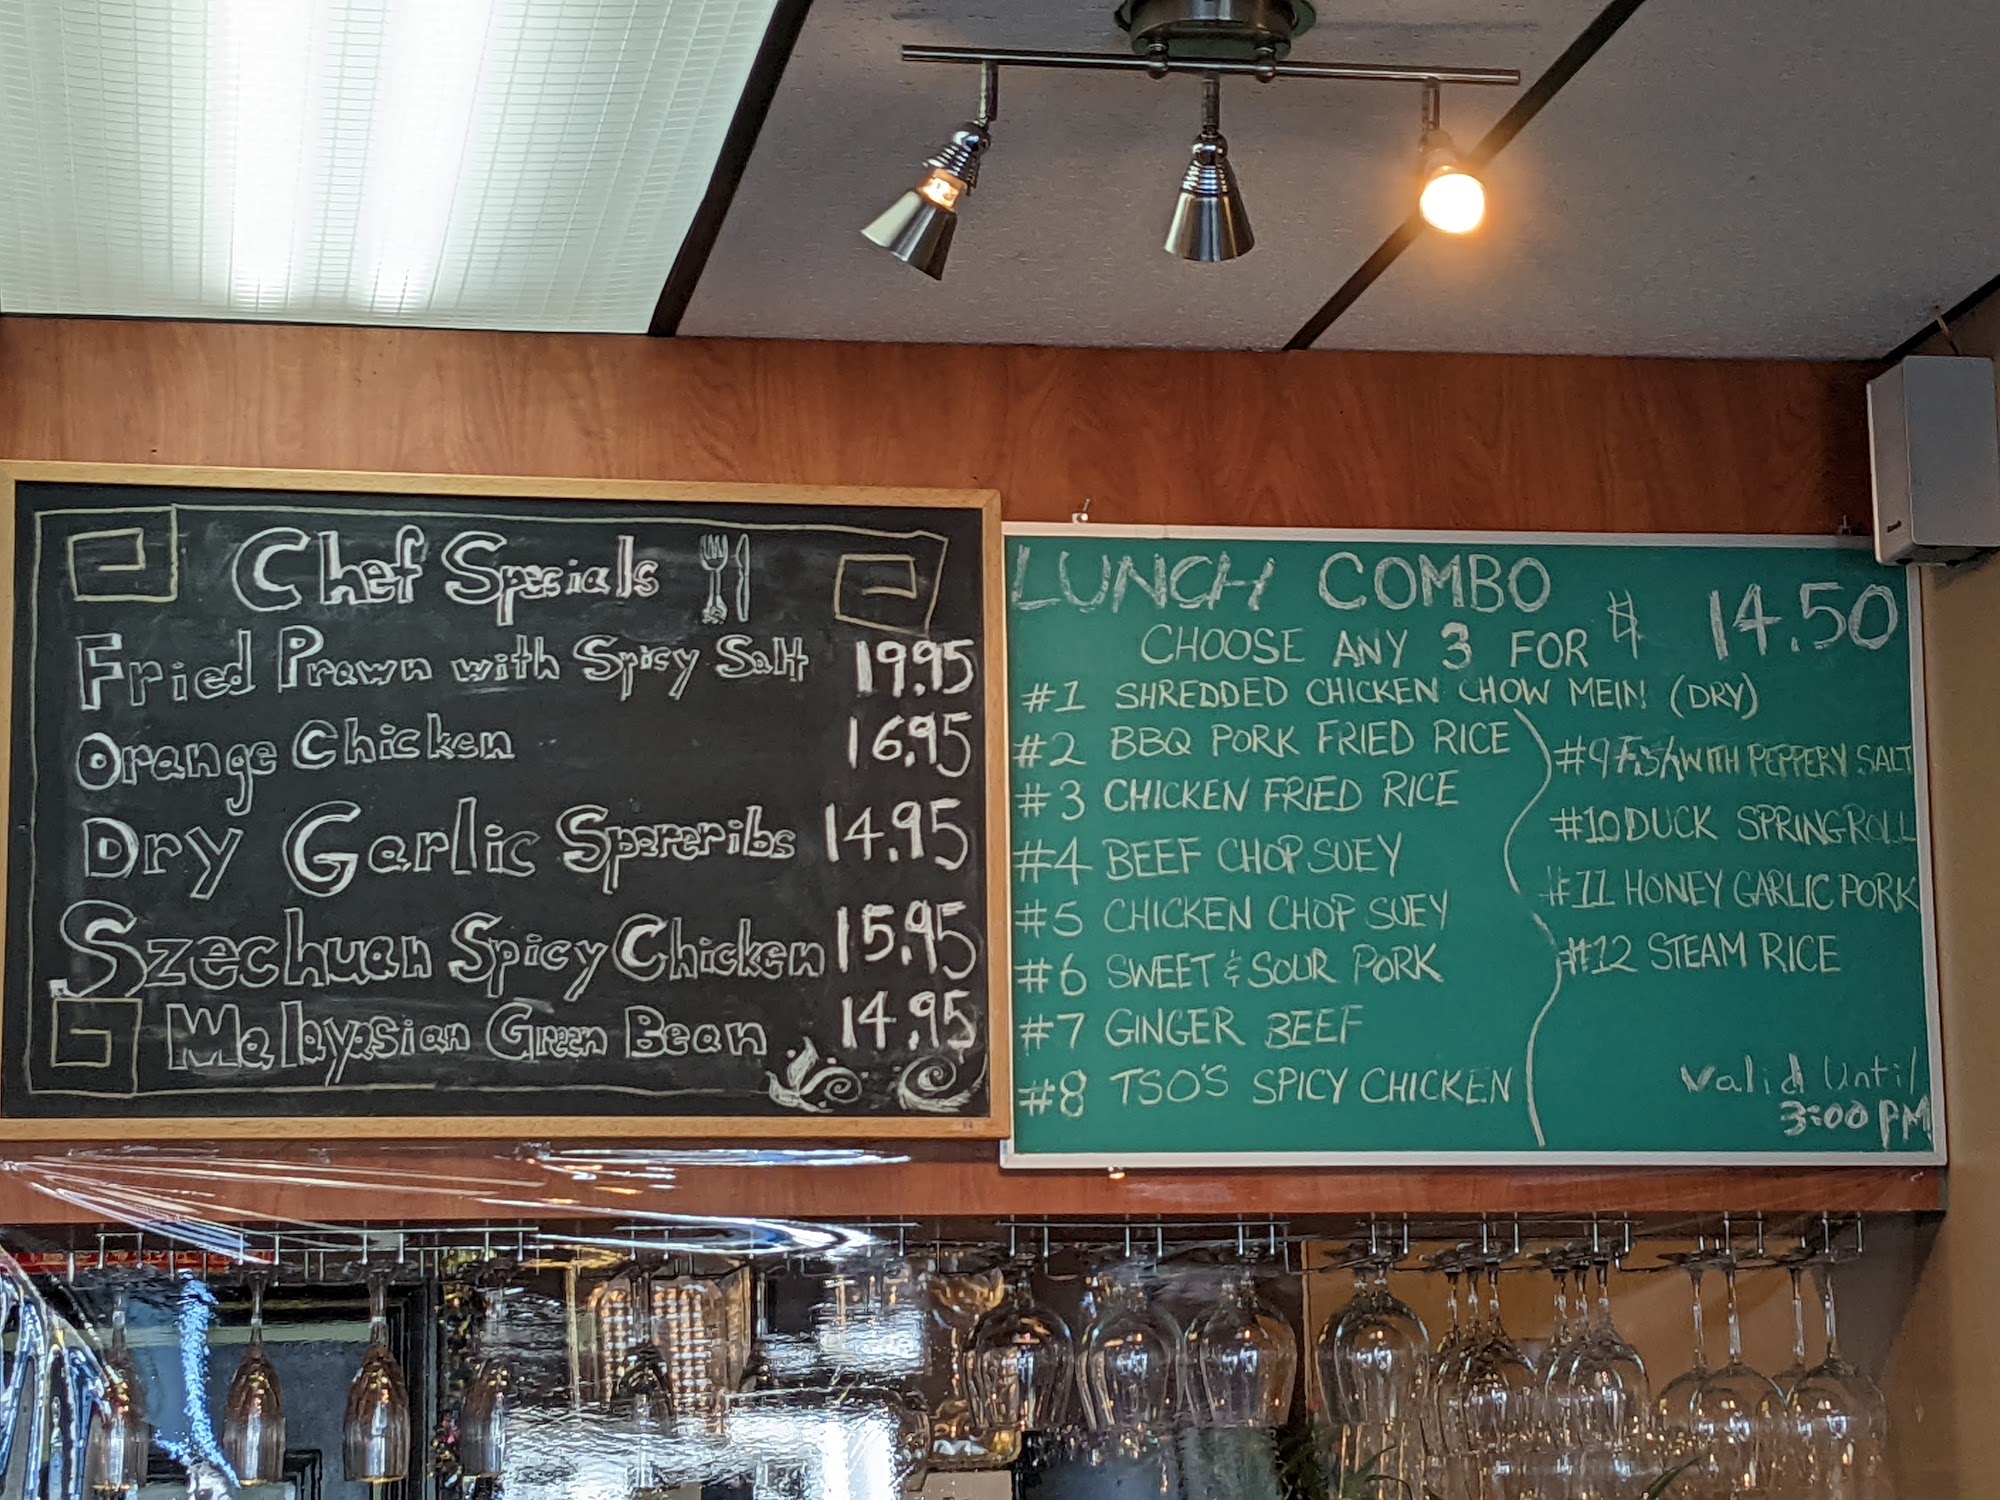 Chef Specials
Fried Prawn with Spicy Salt 19.95
Orange Chicken 16.95
Dry Garlic Spareribs 14.95
Szechuan Spicy Chicken 15.95
Malayasian Green Bean 14.95
LUNCH COMBO
CHOOSE ANY 3 FOR $ 14.50
#1 SHREDDED CHICKEN CHOW MEIN (DRY)
#2 BBQ PORK FRIED RICE
#3 CHICKEN FRIED RICE
#4 BEEF CHOP SUEY
#5 CHICKEN CHOP SUEY
#6 SWEET & SOUR PORK
#7 GINGER BEEF
#8 TSO'S SPICY CHICKEN
#9 Fish WITH PEPPERY SALT
#10 DUCK SPRING ROLL
#11 HONEY GARLIC PORK
#12 STEAM RICE
Valid Until
3:00 PM